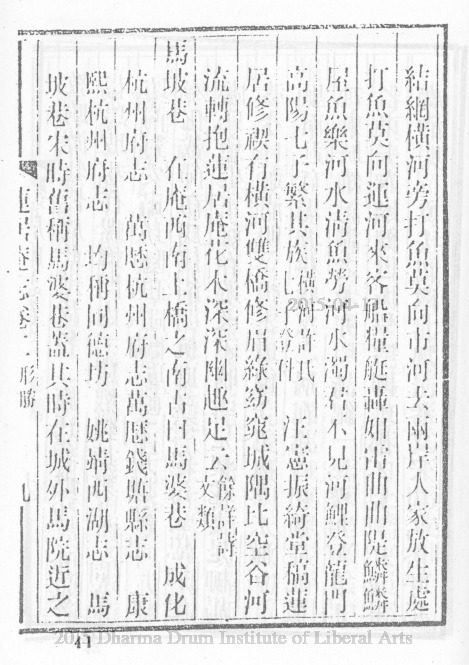 結網橫河旁打魚莫向市河去兩岸人家放生處
打魚莫向運河來客船糧艇轟如雷曲曲隄鱗鱗
屋魚樂河水清魚勞河水濁君不見河鯉登龍門
高陽七子繁其族橫河許氏七子登科 汪憲振綺堂稿蓮
居修禊有橫河雙橋修眉綠窈窕城隅比空谷河
流轉抱蓮居庵花木深深幽趣足云餘詳詩文類
馬坡巷 在庵西南上橋之南古曰馬婆巷 成化
杭州府志 萬歷杭州府志萬歷錢塘縣志 康
熙杭州府志 均稱同德坊 姚靖西湖志 馬
坡巷宋時舊稱馬婆巷蓋其時在城外馬院近之
蓮居庵志卷二 形勝 九
41
2015.04.1
2014 Dharma Drum Institute of Liberal Arts